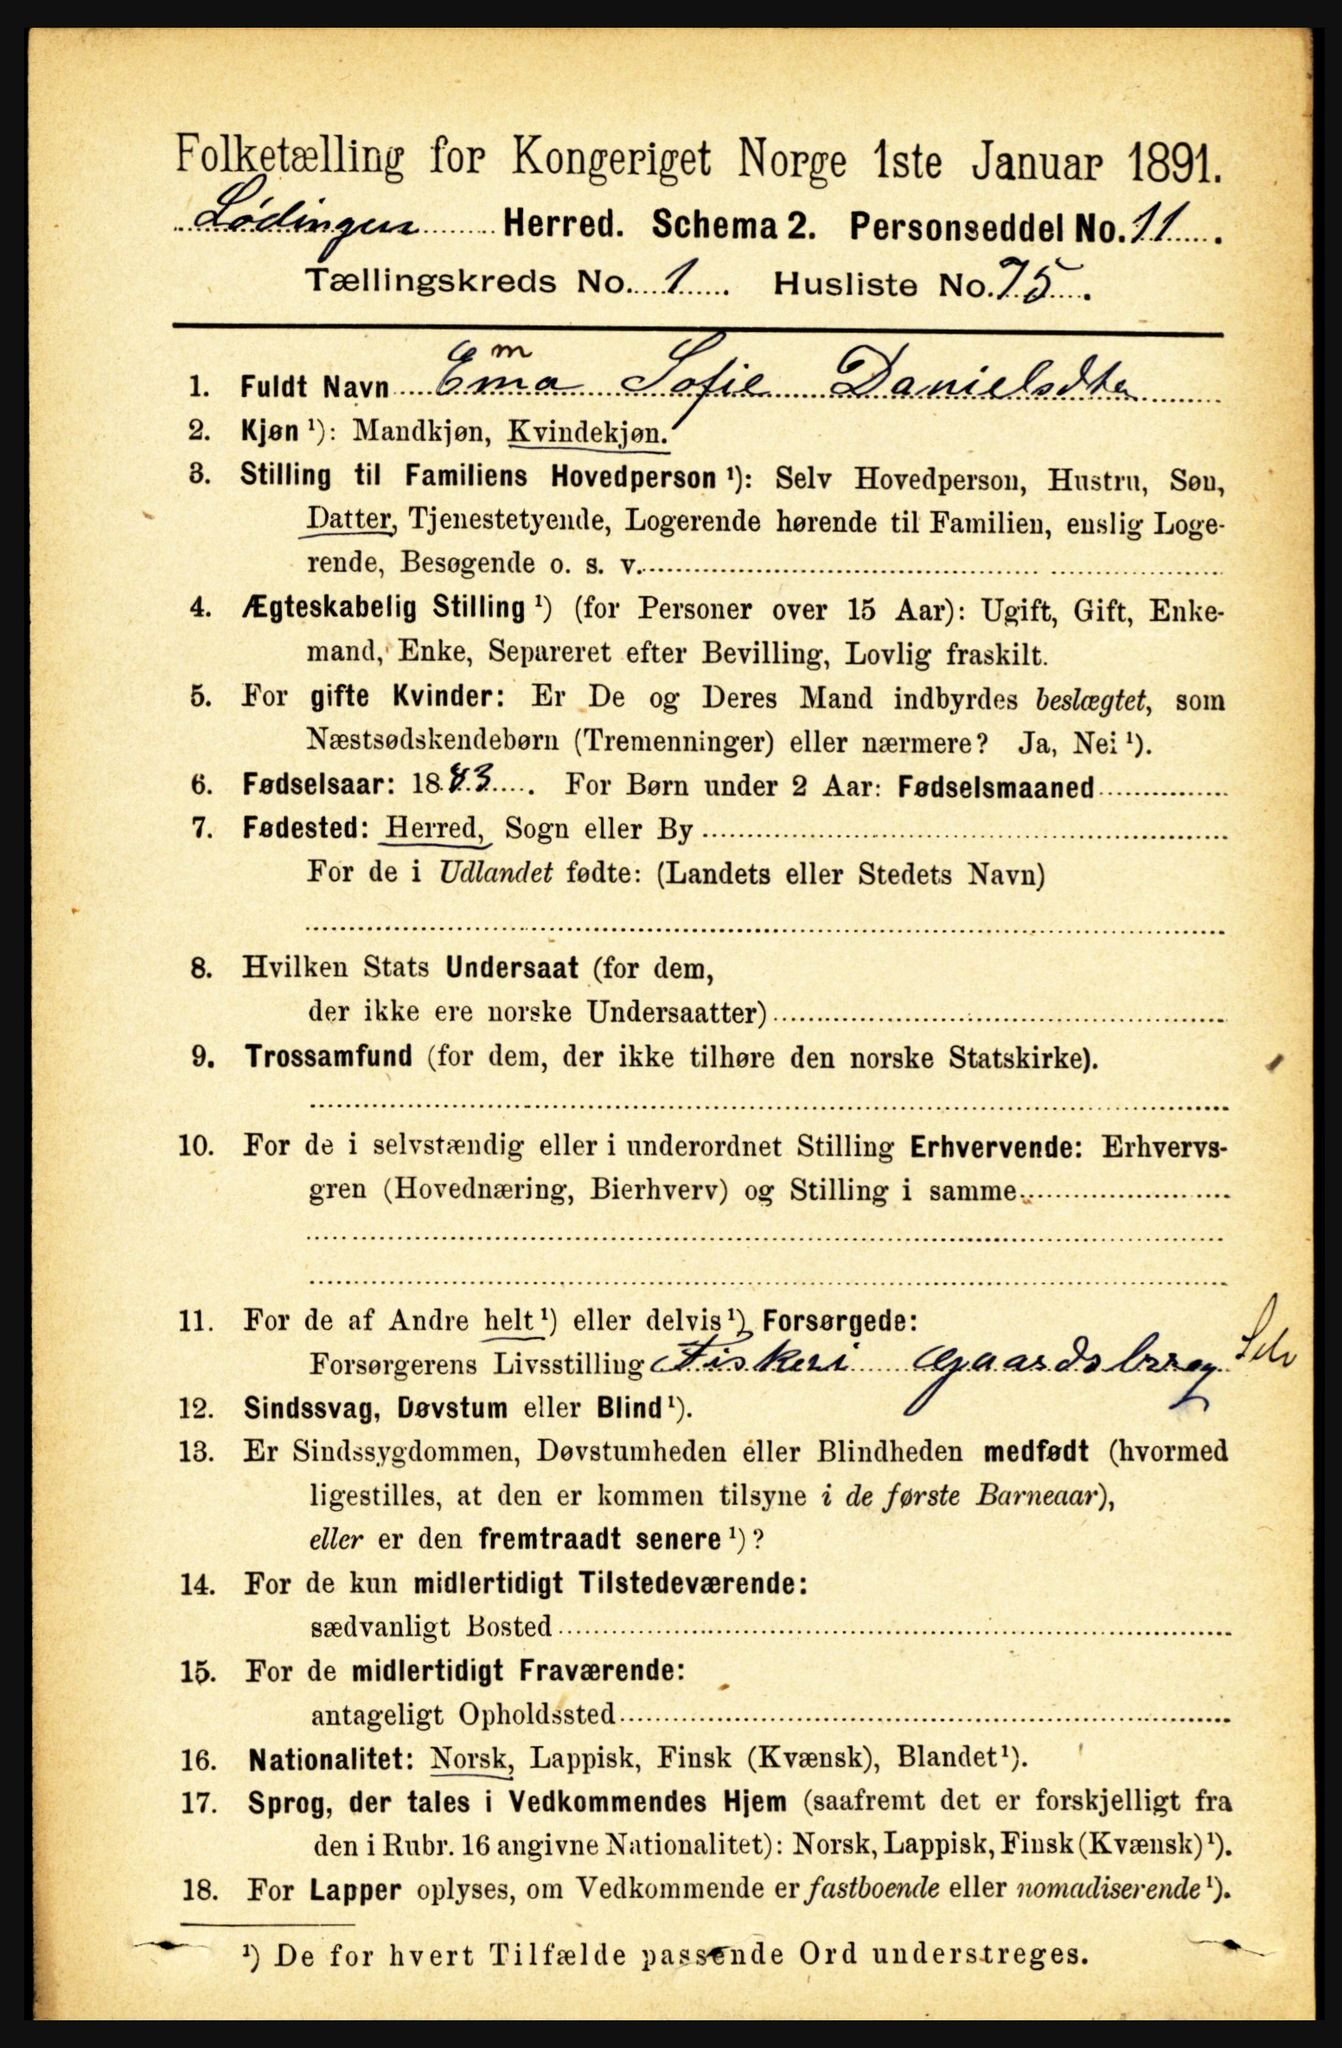 Folketælling for Kongeriget Norge 1ste Januar 1891.
Lødingen Herred. Schema 2. Personseddel No. 11.
Tællingskreds No. 1. Husliste No. 75.
m
1. Fuldt Navn Ema Sofie Danielsdtr
2. Kjøn ¹): Mandkjøn, Kvindekjøn.
3. Stilling til Familiens Hovedperson ¹): Selv Hovedperson, Hustru, Søn,
Datter, Tjenestetyende, Logerende hørende til Familien, enslig Loge-
rende, Besøgende o. s. v.
4. Ægteskabelig Stilling ¹) (for Personer over 15 Aar): Ugift, Gift, Enke-
mand, Enke, Separeret efter Bevilling, Lovlig fraskilt.
5. For gifte Kvinder: Er De og Deres Mand indbyrdes beslægtet, som
Næstsødskendebørn (Tremenninger) eller nærmere? Ja, Nei ¹).
6. Fødselsaar: 1883. For Børn under 2 Aar: Fødselsmaaned
7. Fødested: Herred, Sogn eller By
For de i Udlandet fødte: (Landets eller Stedets Navn)
8. Hvilken Stats Undersaat (for dem,
der ikke ere norske Undersaatter)
9. Trossamfund (for dem, der ikke tilhøre den norske Statskirke).
10. For de i selvstændig eller i underordnet Stilling Erhvervende: Erhvervs-
gren (Hovednæring, Bierhverv) og Stilling i samme
11. For de af Andre helt ¹) eller delvis ¹) Forsørgede:
Forsørgerens Livsstilling Fiskeri Gaardsbrug
12. Sindssvag, Døvstum eller Blind ¹).
13. Er Sindssygdommen, Døvstumheden eller Blindheden medfødt (hvormed
ligestilles, at den er kommen tilsyne i de første Barneaar),
eller er den fremtraadt senere ¹)?
14. For de kun midlertidigt Tilstedeværende:
sædvanligt Bosted
15. For de midlertidigt Fraværende:
antageligt Opholdssted
16. Nationalitet: Norsk, Lappisk, Finsk (Kvænsk), Blandet ¹).
17. Sprog, der tales i Vedkommendes Hjem (saafremt det er forskjelligt fra
den i Rubr. 16 angivne Nationalitet): Norsk, Lappisk, Finsk (Kvænsk) ¹).
18. For Lapper oplyses, om Vedkommende er fastboende eller nomadiserende ¹).
¹) De for hvert Tilfælde passende Ord understreges.